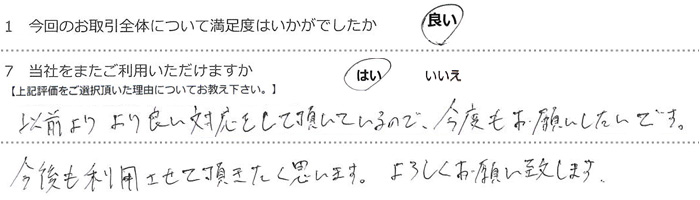 1 今回のお取引全体について満足度はいかがでしたか 良い
7 当社をまたご利用いただけますか はい いいえ
【上記評価をご選択頂いた理由についてお教え下さい。】
以前より より良い対応をして頂いているので、今度もお願いしたいです。
今後も利用させて頂きたく思います。よろしくお願い致します。